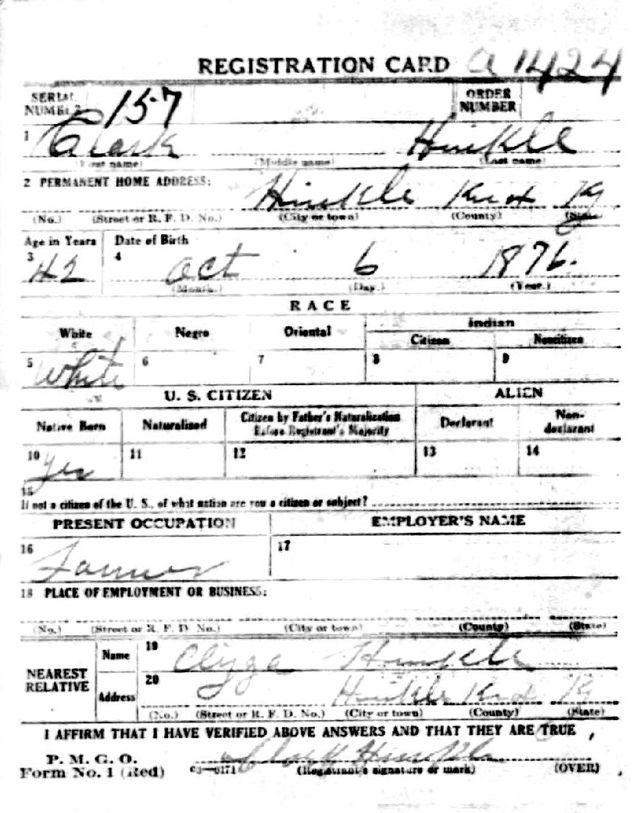 REGISTRATION CARD a 1424
SERIAL NUMBER 157 ORDER NUMBER
1 Clark Hinkle
(First name) (Middle name) (Last name)
2 PERMANENT HOME ADDRESS: Hinkle Knox Ky
(No.) (Street or R. F. D. No.) (City or town) (County) (State)
Age in Years Date of Birth
3 42 4 Oct 6 1876.
(Month.) (Day.) (Year.)
RACE
White Negro Oriental Indian
Citizen Noncitizen
5 White 6 7 8 9
U. S. CITIZEN ALIEN
Native Born Naturalized Citizen by Father's Naturalization Before Registrant's Majority Declarant Non-declarant
10 Yes 11 12 13 14
15
If not a citizen of the U. S., of what nation are you a citizen or subject?
PRESENT OCCUPATION EMPLOYER'S NAME
16 Farmer 17
18 PLACE OF EMPLOYMENT OR BUSINESS:
(No.) (Street or R. F. D. No.) (City or town) (County) (State)
NEAREST RELATIVE Name 19 Clyza Hinkle
Address 20 Hinkle Knox Ky
(No.) (Street or R. F. D. No.) (City or town) (County) (State)
I AFFIRM THAT I HAVE VERIFIED ABOVE ANSWERS AND THAT THEY ARE TRUE
P. M. G. O.
Form No. 1 (Red) 03—6171 Clark Hinkle (Registrant's signature or mark) (OVER)